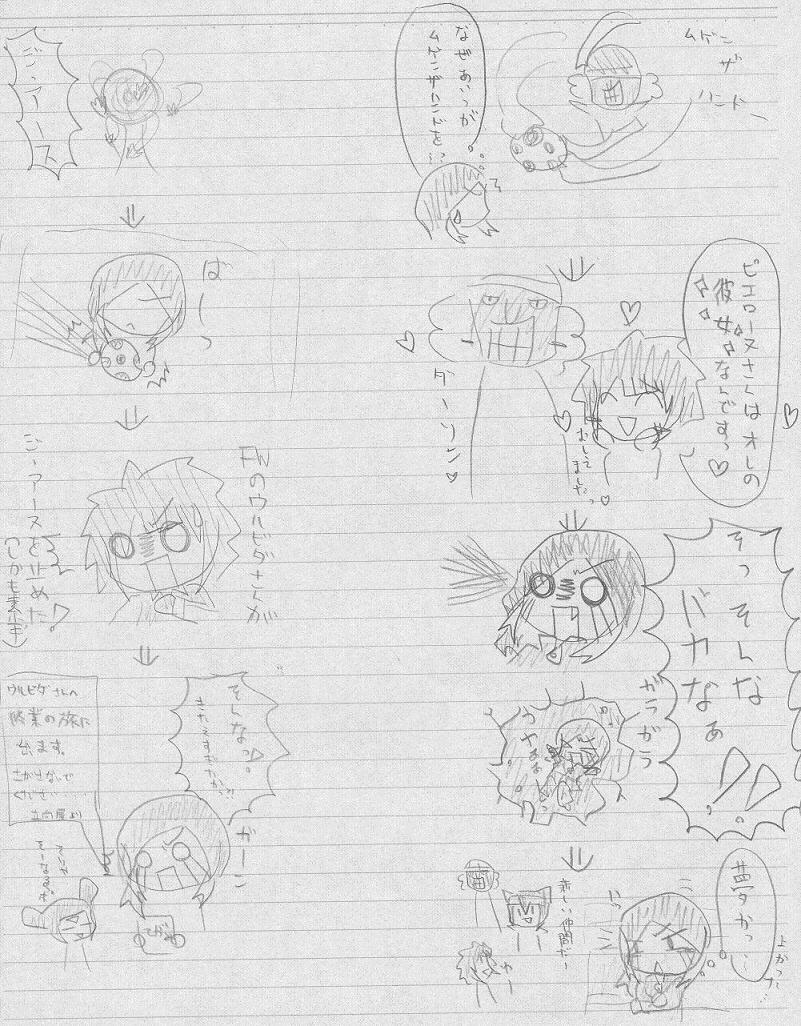 ムゲン
ザ
ハンドー
なぜあいつが
ムゲンザハンドを…
ピエローヌさんはオレの
彼女なんですっ♡
ダーリン♡
おしてしました。♡
そっそんな
バカなぁ!!
ガラガラ
夢かっ…
新しい仲間だー
わー
ジ・アース
ばーっ
FWのウルビダさんが
ジ・アースを止めた!?
(しかも素手)
そんなっ!?
きたえすぎたか…!?
ガーン
ウルビダさんへ
修業の旅に
出ます。
さがさないで
ください……
立向居より